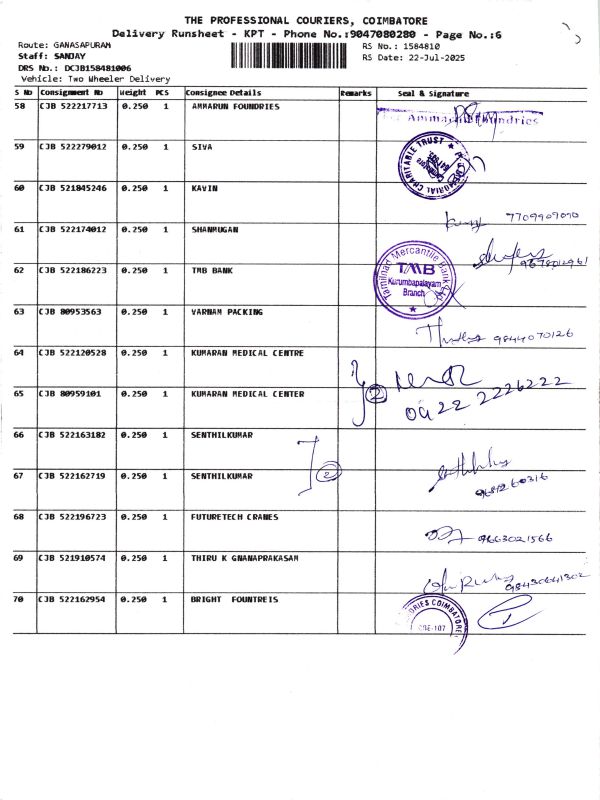 THE PROFESSIONAL COURIERS, COIMBATORE
Delivery Runsheet - KPT - Phone No.:9047080280 - Page No.:6
Route: GANASAPURAM
RS No.: 1584810
Staff: SANJAY
RS Date: 22-Jul-2025
DRS No.: DCJB158481006
Vehicle: Two Wheeler Delivery
S No Consignment No Weight PCS Consignee Details Remarks Seal & Signature
58 CJB 522217713 0.250 1 AMMARUN FOUNDRIES
For Ammarun Foundries
59 CJB 522279012 0.250 1 SIVA
MEMORIAL CHARITABLE TRUST
60 CJB 521845246 0.250 1 KAVIN
7709907090
61 CJB 522174012 0.250 1 SHANMUGAN
9678012961
62 CJB 522186223 0.250 1 TMB BANK
Tamilnad Mercantile Bank Ltd
TMB
Kurumbapalayam
Branch
63 CJB 80953563 0.250 1 VARNAM PACKING
9844070126
64 CJB 522120528 0.250 1 KUMARAN MEDICAL CENTRE
65 CJB 80959101 0.250 1 KUMARAN MEDICAL CENTER
2
0422 2226222
66 CJB 522163182 0.250 1 SENTHILKUMAR
67 CJB 522162719 0.250 1 SENTHILKUMAR
2
68 CJB 522196723 0.250 1 FUTURETECH CRANES
9663021566
69 CJB 521910574 0.250 1 THIRU K GNANAPRAKASAM
98430641302
70 CJB 522162954 0.250 1 BRIGHT FOUNTREIS
COIMBATORE
CBE-107